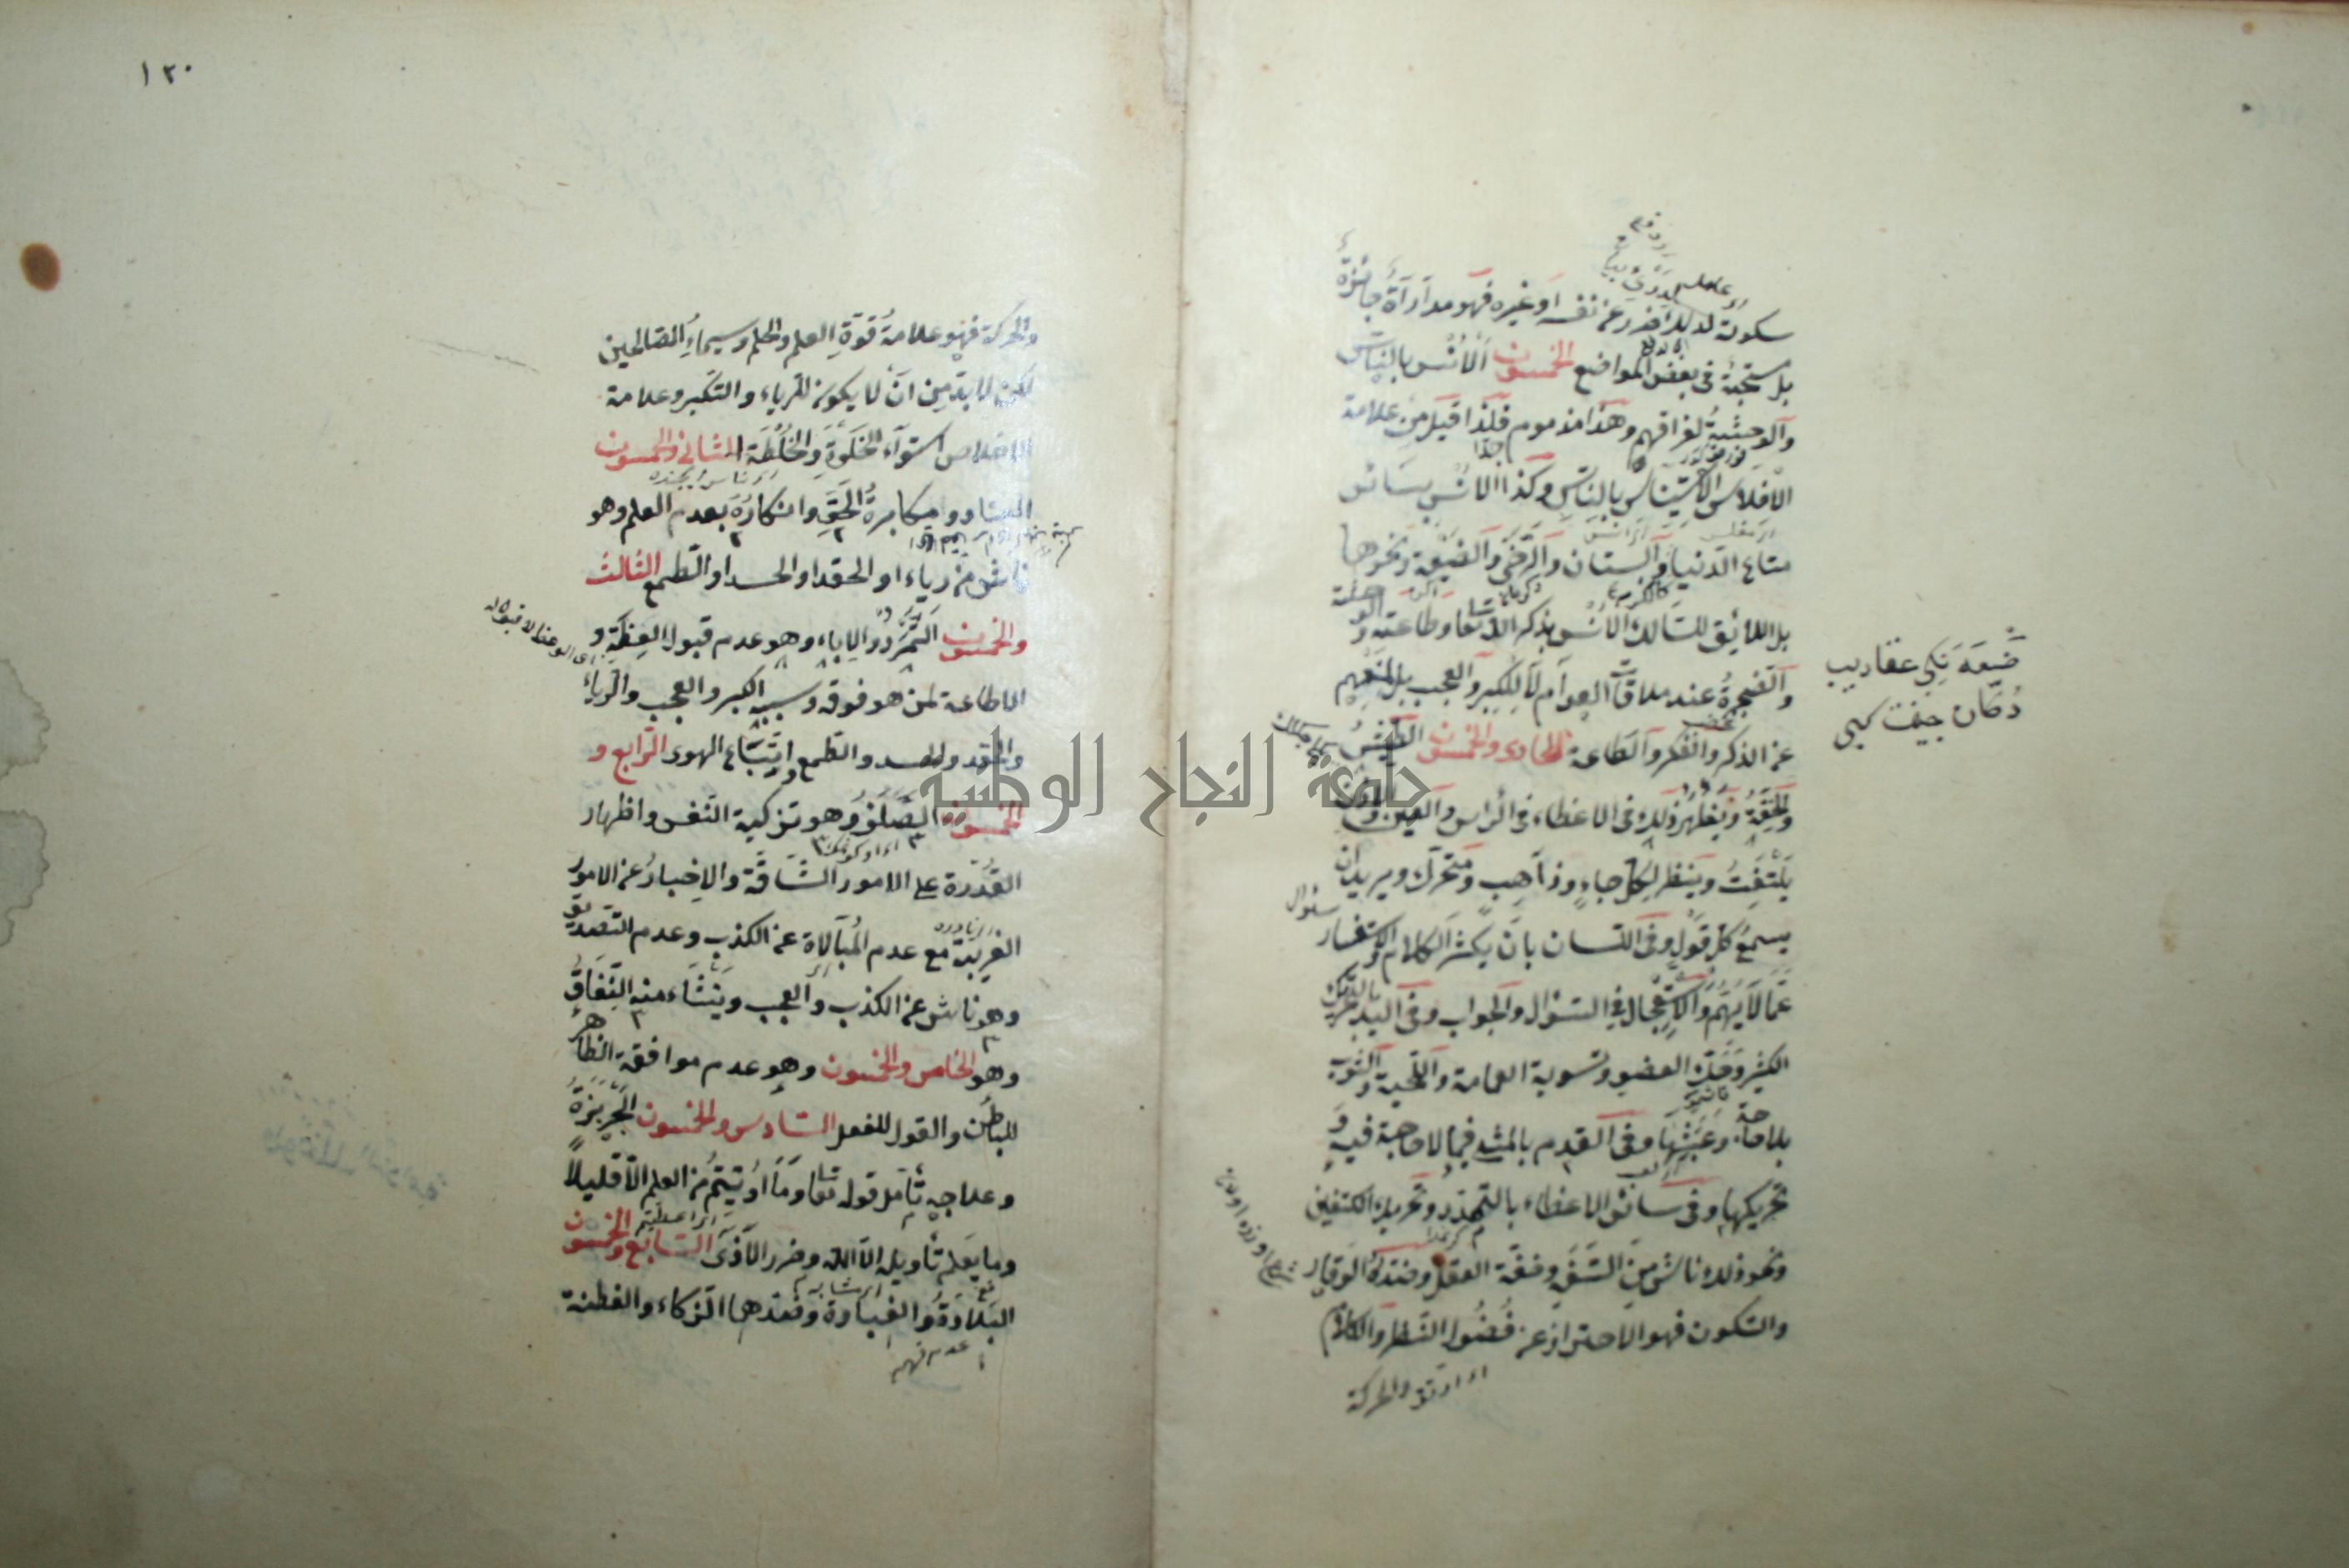 سكوته لدفع الضرر عن نفسه او غيره فهو مداراة جائزة
بل مستحبة فى بعض المواضع الخمسون الانس بالناس
والوحشة لفراقهم وهذا مذموم فلذا قيل من علامة
الافلاس الاستيناس بالناس وكذا الانس بسائر
متاع الدنيا والبستان والرحى والضيعة ونحوها
بل اللائق للسالك الانس بذكر الله تعا وطاعته والوحشة
والضجرة عند ملاقات العوام لا للكبر والعجب بل لمنعهم
عن الذكر والفكر والطاعة الحادى والخمسون الطيش
والخفة ويظهر ذلك فى الاعضاء فى الراس والعين والاذن
يلتفت وينظر لكل جاء وذاهب ومتحرك ويريد ان
يسمع كل قول وفى اللسان بان يكثر الكلام والاستفسار
سئوال
عما لا يهم والاستعجال فى السؤال والجواب وفى اليد بالتحريك
الكثير وحك العضو وتسوية العمامة واللحية والثوب
بلا حاجة وعبثها وفى القدم بالمشى فيما لا حاجة فيه و
تحريكها وفى سائر الاعضاء بالتمدد وتحريك الكتفين
ونحو ذلك ناش من السفه وخفة العقل وضده الوقار
والسكون فهو الاحتراز عن فضول النظر والكلام
والحركة
ضيعة نكى عقاريب
دكان جفت كبى
١٢٠
والحركة فهو علامة قوة العلم والحلم وسيماء الصالحين
لكن لا بد من ان لا يكون للرياء والتكبر وعلامة
الاخلاص استواء الخلوة والخلطة الثانى والخمسون
العناد ومكابرة الحق وانكاره بعدم العلم وهو
ناش من رياء او الحقد او الحسد او الطمع الثالث
والخمسون التمرد والاباء وهو عدم قبول العظة و
اى الوعظ لا قبوله
الاطاعة لمن هو فوقه وسببه الكبر والعجب والرياء
والحقد والحسد والطمع واتباع الهوى الرابع و
الخمسون الصلف وهو تزكية النفس واظهار
القدرة على الامور الشاقة والاخبار عن الامور
الغريبة مع عدم المبالاة عن الكذب وعدم التصديق
وهو ناش عن الكذب والعجب وينشاء منه النفاق
وهو الخامس والخمسون وهو عدم موافقة الظاهر
للباطن والقول للفعل السادس والخمسون الجربزة
وعلاجه تأمل قوله تعا وما اوتيتم من العلم الا قليلا
وما يعلم تأويله الا الله وضرر الاذى السابع والخمسون
البلادة والغباوة وضدهما الذكاء والفطنة
عدم فهم
جامعة النجاح الوطنية